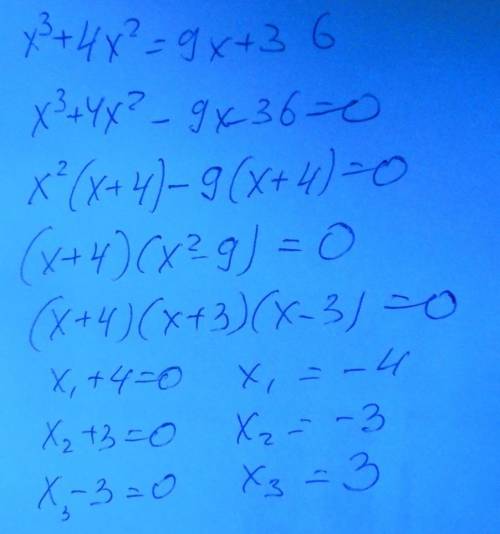 x³+4x²=9x+36
x³+4x²-9x-36=0
x²(x+4)-9(x+4)=0
(x+4)(x²-9)=0
(x+4)(x+3)(x-3)=0
x₁+4=0 x₁=-4
x₂+3=0 x₂=-3
x₃-3=0 x₃=3